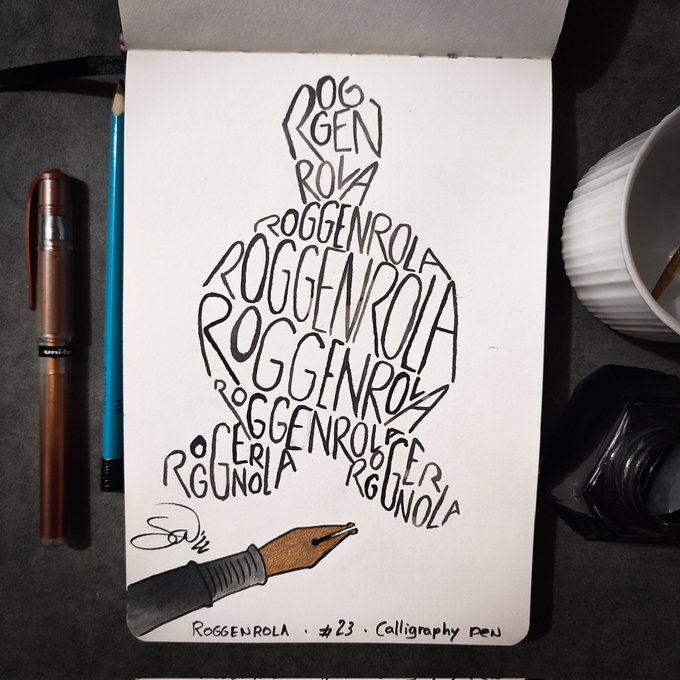 ROG
GEN
ROLA
ROGGENROLA
ROGGENROLA
ROGGENROLA
ROGGENROLA
ROGGENROLA
ROGGENROLA
'22
ROGGENROLA · #23 · Calligraphy pen